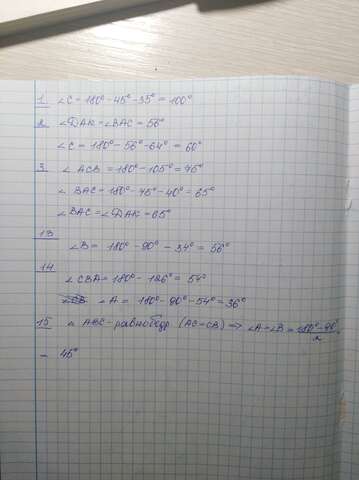 1. ∠C = 180° - 45° - 35° = 100°
2. ∠DAK = ∠BAC = 56°
∠C = 180° - 56° - 64° = 60°
3. ∠ACB = 180° - 105° = 75°
∠BAC = 180° - 75° - 40° = 65°
∠BAC = ∠DAK = 65°
13
∠B = 180° - 90° - 34° = 56°
14
∠CBA = 180° - 126° = 54°
∠A = 180° - 90° - 54° = 36°
15 ABC - равнобедр (AC = CB) => ∠A = ∠B = 180° - 90° / 2
= 45°